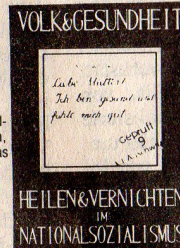 VOLK&GESUNDHEIT
Liebe Mutter!
Ich bin gesund und
fühle mich gut.
Geprüft
9
HEILEN&VERNICHTEN
IM
NATIONALSOZIALISMUS